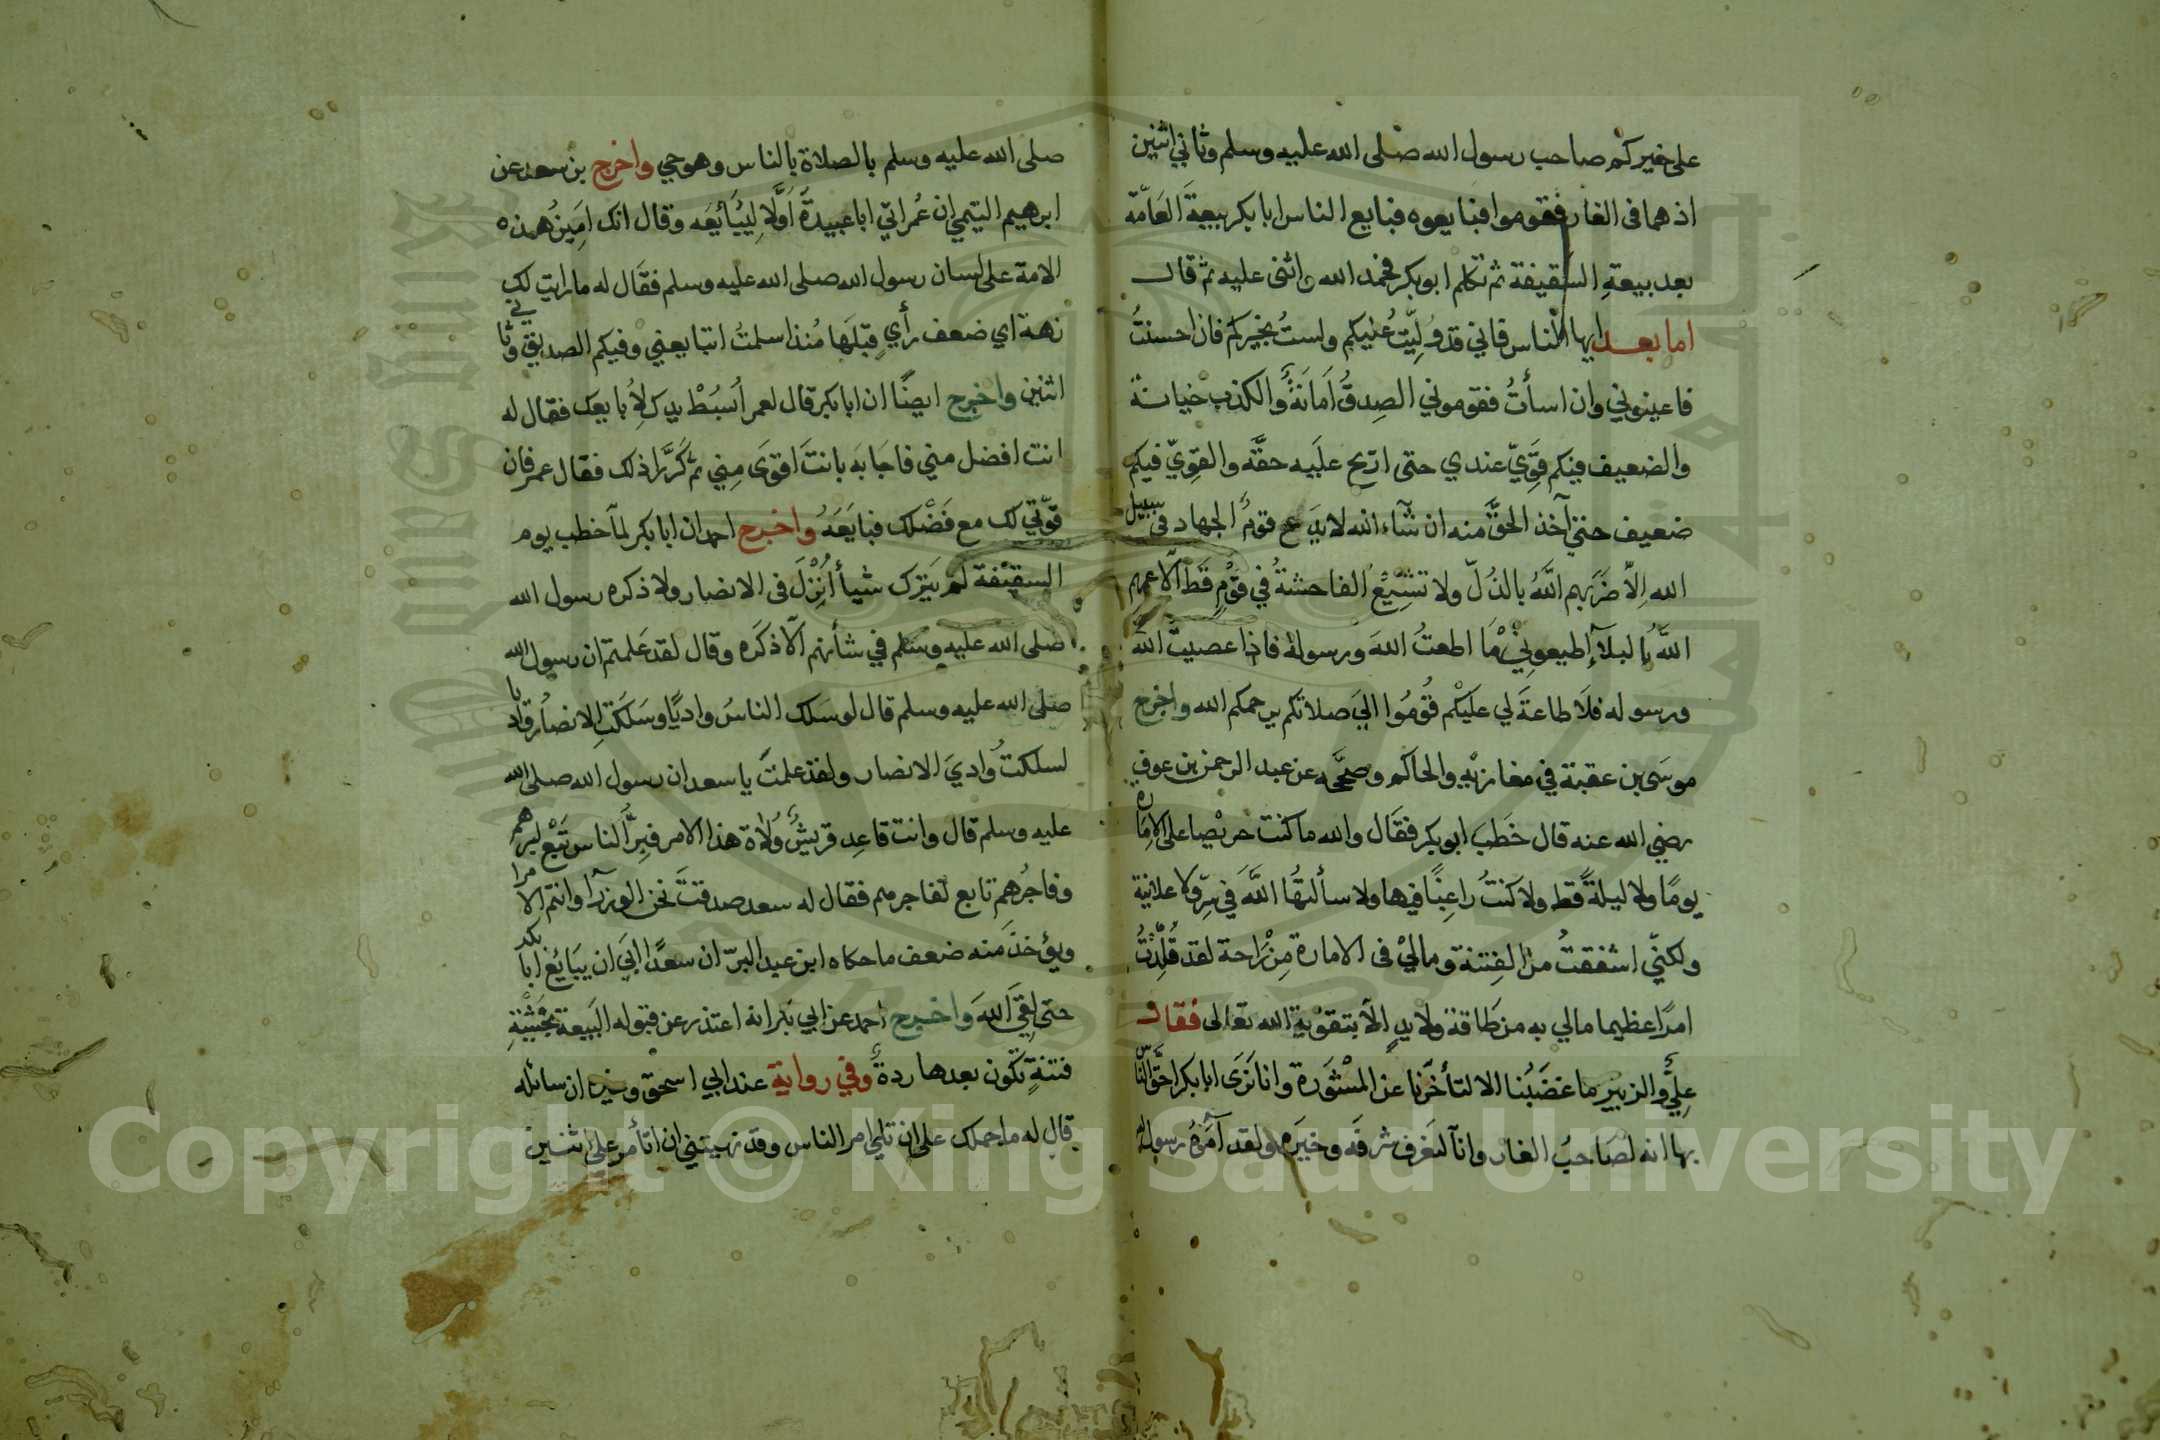 على خيركم صاحب رسول الله صلى الله عليه وسلم وثاني اثنين
اذ هما فى الغار فقوموا فبايعوه فبايع الناس ابا بكر بيعةَ العَامّة
بعد بيعةِ السقيفة ثم تكلم ابو بكر فحمد الله واثنى عليه ثم قال
اما بعد ايها الناس فاني قد وُلِّيتُ عليكم ولستُ بخيركم فان احسنتُ
فاعينوني وان اسأتُ فقوموني الصِدقُ اَمَانَةٌ والكذب خيانة
والضعيف فيكم قَوِيّ عندي حتى اريح علَيه حقَّه والقوِيّ فيكم
ضعيف حتى آخذ الحقَّ منه ان شآء الله لا يدَع قومٌ الجهاد فى سبيل
الله اِلاّ ضَرَبهم اللهُ بالذُلّ ولا تشِيْعُ الفاحشةُ في قَوْمٍ قَط الّا عمهم
اللهُ بالبلآءِ اطيعوني مَا اطعتُ اللهَ ورسوله فاذا عصيتُ اللهَ
ورسوله فلَا طاعةَ لي علَيكم قُومُوا الىَ صلاتكم يرحمكم الله واخرج
موسَى بن عقبة في مغازيه والحاكم وصحَّحه عن عبد الرحمن بن عوف
رضي الله عنه قال خَطَبَ ابو بكر فقَال والله ما كنت حريْصا على الاِمَارة
يومًا ولا ليلةً قط ولا كنتُ راغِبًا فيها ولا سألتهُا اللهَ في سِرّ ولا علانية
ولكنّي اشفقتُ من الفِتنة ومالِيْ فى الامارة مِنْ رَاحة لقد قُلِّدْتُ
امرًا عظيما مالي به من طَاقة ولا يدٍ اِلّا بتقوْيةِ الله تعَالى فقال
علِيٌّ والزبير ما غضَبْنا الا لتأخّرنا عن المَشْوَرة وانا نَرَى ابا بكر احقَّ الناس
بها انه لصَاحبُ الغار وانّا لنَعْرِف شرفَه وخيرَه ولقد أمَرَهُ رسول الله
صلى الله عليه وسلم بالصلاة بالناس وهو حي واخرج بن سعد عن
ابرهيم التيمي ان عُمر اتى ابا عبيدةَ اَوَّلًا لِيُبَايعَه وقال انك امِينُ هذه
الامة على لسان رسول الله صلى الله عليه وسلم فقَال له ما رايت لك
فهة اي ضعف رأيٍ قبْلَها مُنذ اسلمتُ اتبايعني وفيكم الصديق وثاني
اثنين واخرج ايضًا ان ابا بكر قال لعمر اُبسُطْ يدك لِاُبايعك فقال له
انت افضل مني فاجابَه بانتَ اقوَى مِنِي ثم كَرَّرا ذلك فقال عمر فان
قوّتي لك مع فَضْلك فبايَعَهُ واخرج احمد ان ابا بكر لمآ خطب يوم
السقيْفة لم يَترك شيأ اُنْزِلَ فى الانصار ولا ذكره رسول الله
صلى الله عليه وسلم في شأنهم الّا ذكَره وقال لقد عَلمتم ان رسول الله
صلى الله عليه وسلم قال لو سَلك الناسُ وادِيًا وسَلكَتِ الانصَارُ وادِيا
لسلكتُ وادِيَ الانصار ولقد علمتَ يا سعد ان رسول الله صلى الله
عليه وسلم قال وانت قاعِد قريشٌ وُلاة هذا الامر فبِرُّ الناس تَبْع لبرهم
وفاجرُهم تابع لفاجرهم فقال له سعد صدقتَ نحن الوزرآء وانتم الامرا
ويؤخذَ منه ضعف ما حكاه ابن عبد البرّ ان سعدًا ابَى ان يبَايُع ابا بكر
حتى لِقيَ اللهَ واخرج احمد عن ابي بكر انه اعتذر عن قبوله البَيعة بخَشْيَةِ
فتنةٍ تكون بعدها ردةٌ وفي رواية عند ابي اسحق وغيره ان سائله
قال له ما حملك على ان تلي امر الناس وقد نهيتني ان اتأمر على اثنين
Copyright © King Saud University